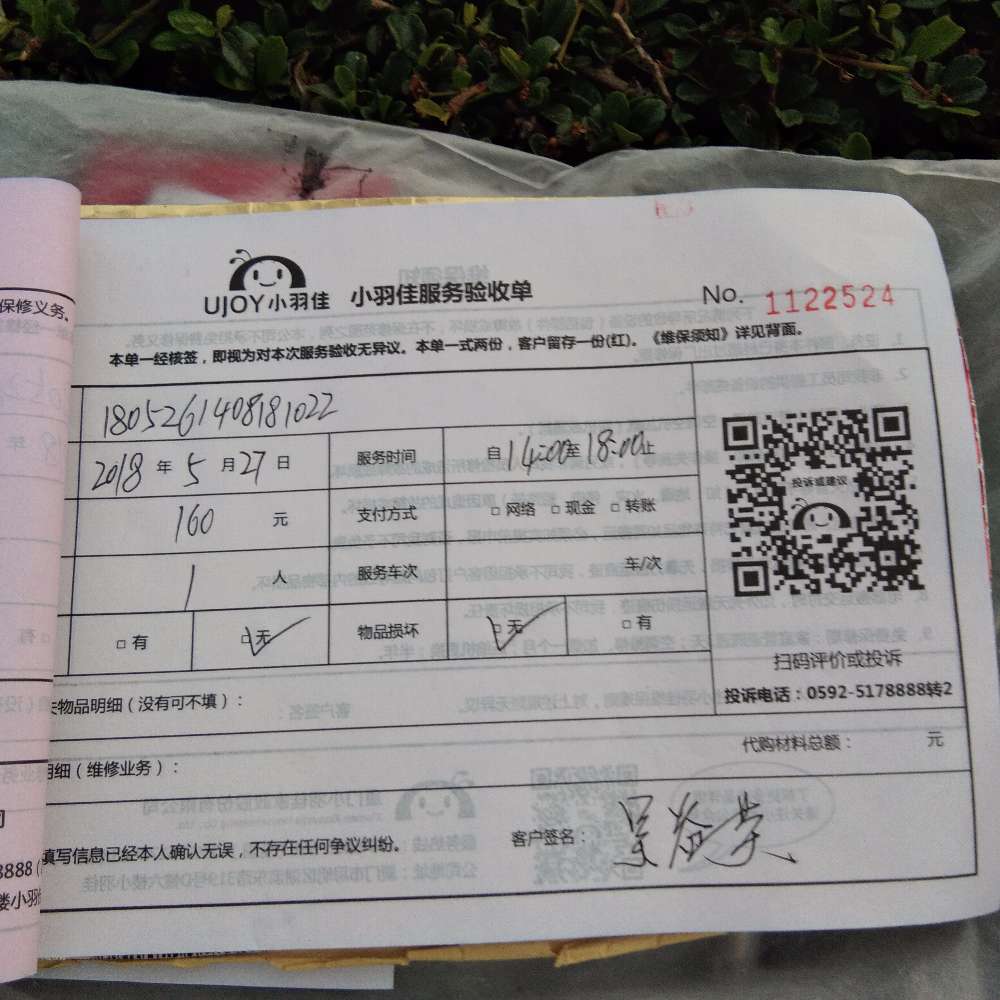 保修义务。
UJOY小羽佳 小羽佳服务验收单 No. 1122524
本单一经核签，即视为对本次服务验收无异议。本单一式两份，客户留存一份(红)。《维保须知》详见背面。
1805261408181022
2018 年 5 月 27 日 服务时间 自 14:00 至 18:00 止
160 元 支付方式 □ 网络 □ 现金 □ 转账
1 人 服务车次 车/次
□ 有 □ 无 物品损坏 □ 无 □ 有
投诉或建议
扫码评价或投诉
投诉电话：0592-5178888转2
物品明细（没有可不填）：
代购材料总额： 元
明细（维修业务）：
填写信息已经本人确认无误，不存在任何争议纠纷。 客户签名：
8888
楼小羽佳